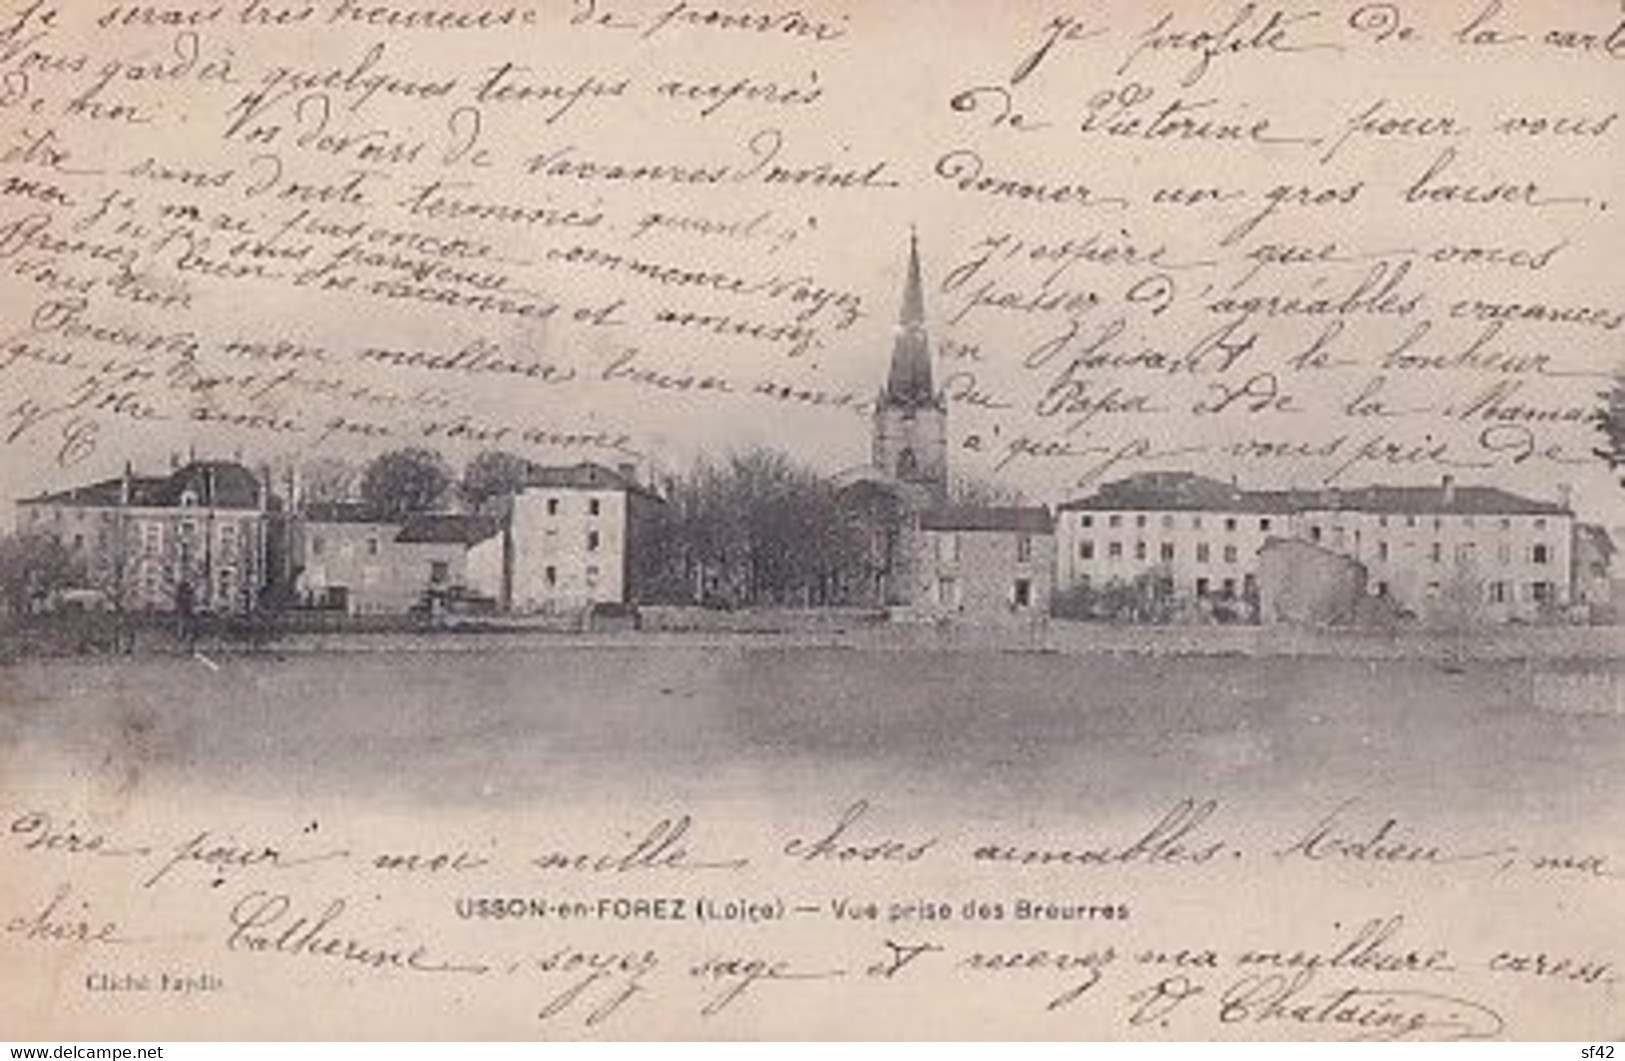 je serais très heureuse de pouvoir
Vous garder quelques temps auprès
de moi. Vos devoirs de vacances doivent
être sans doute terminés, quant à
moi je n'ai pas encore commencé voyez
si je suis paresseuse
Prenez bien vos vacances et amusez
vous bien
Recevez mon meilleur baiser ainsi
que vos
Votre amie qui vous aime
V. C
Je profite de la carte
de Victorine pour vous
donner un gros baiser.
J'espère que vous
passez d'agréables vacances
en faisant le bonheur
du Papa et de la Maman
à qui je vous pris de
dire pour moi mille choses aimables. Adieu, ma
chère Catherine, soyez sage et recevez ma meilleure caress
V. Chataing
USSON-en-FOREZ (Loire) — Vue prise des Breurres
Cliché Faydis
delcampe.net
sf42